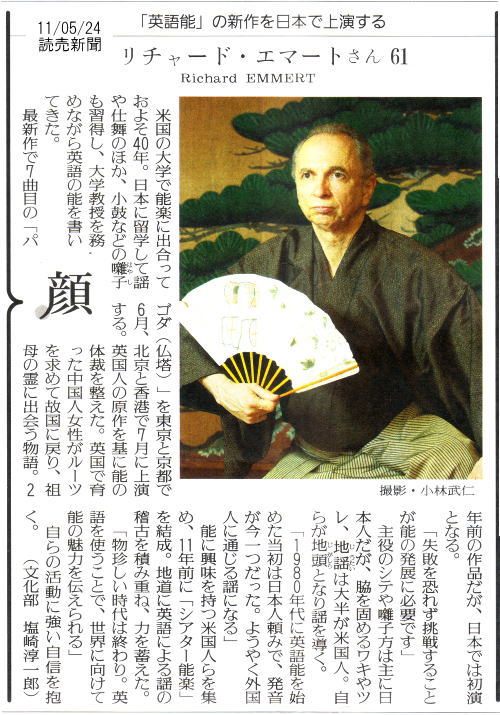 11/05/24
読売新聞
「英語能」の新作を日本で上演する
リチャード・エマートさん 61
Richard EMMERT
米国の大学で能楽に出合って
およそ40年。日本に留学して謡
や仕舞のほか、小鼓などの囃子
はやし
も習得し、大学教授を務
めながら英語の能を書い
てきた。
最新作で7曲目の「パ
顔
ゴダ(仏塔)」を東京と京都で
6月、北京と香港で7月に上演
する。英国人の原作を基に能の
体裁を整えた。英国で育
った中国人女性がルーツ
を求めて故国に戻り、祖
母の霊に出会う物語。2
撮影・小林武仁
年前の作品だが、日本では初演
となる。
「失敗を恐れず挑戦すること
が能の発展に必要です」
主役のシテや囃子方は主に日
本人だが、脇を固めるワキやツ
レ、地謡は大半が米国人。自
じうたい
らが地頭となり謡を導く。
じがしら
「1980年代に英語能を始
めた当初は日本人頼みで、発音
が今一つだった。ようやく外国
人に通じる謡になる」
能に興味を持つ米国人らを集
め、11年前に「シアター能楽」
を結成。地道に英語による謡の
稽古を積み重ね、力を蓄えた。
「物珍しい時代は終わり。英
語を使うことで、世界に向けて
能の魅力を伝えられる」
自らの活動に強い自信を抱
く。(文化部 塩崎淳一郎)